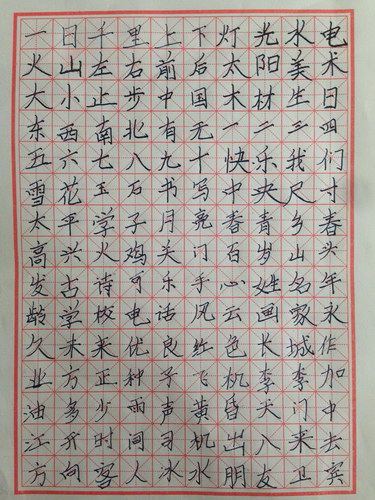 一日千里上下灯光水电
火山左右前后太阳美术
大小止步中国木材生日
东西南北有无一二三四
五六七八九十快乐我们
雪花玉石书写中央尺寸
太平学子月亮春青乡春
高兴火鸡关门百岁山头
发古诗可乐手心姓名年
龄学校电话风云画家永
久未来优良红色长城作
业方正种子飞机李李加
油多少雨声黄昏天门中
江开时间习机出八来去
方向客人冰水朋友卫宾